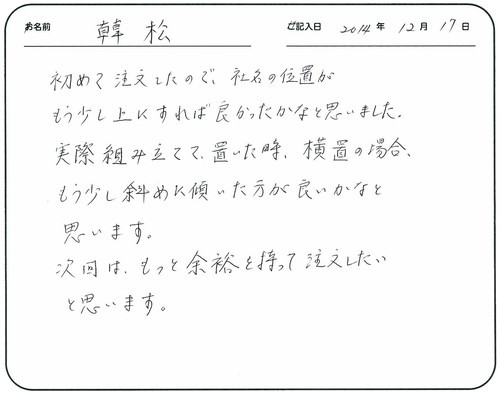 お名前 韓 松 ご記入日 2014 年 12 月 17 日
初めて注文したので、社名の位置が
もう少し上にすれば良かったかなと思いました。
実際組み立てて、置いた時、横置の場合、
もう少し斜めに傾いた方が良いかなと
思います。
次回は、もっと余裕を持って注文したい
と思います。